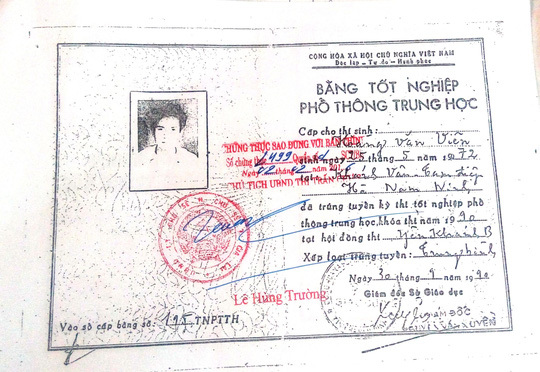 CỘNG HÒA XÃ HỘI CHỦ NGHĨA VIỆT NAM
Độc lập - Tự do - Hạnh phúc
BẰNG TỐT NGHIỆP
PHỔ THÔNG TRUNG HỌC
Cấp cho thí sinh:
Văn Viên
sinh ngày 25 tháng 5 năm 1972
tại
Hà Nam Ninh
đã trúng tuyển kỳ thi tốt nghiệp phổ
thông trung học, khóa thi năm 1990
tại hội đồng thi Yên Khánh B
Xếp loại trúng tuyển: Trung bình
Ngày 30 tháng 9 năm 1990
Giám đốc Sở Giáo dục
CHỨNG THỰC SAO ĐÚNG VỚI BẢN CHÍNH
Số chứng thực 499
CHỦ TỊCH UBND THỊ TRẤN
Lê Hùng Trường
Vào sổ cấp bằng số: 195 TNPTTH